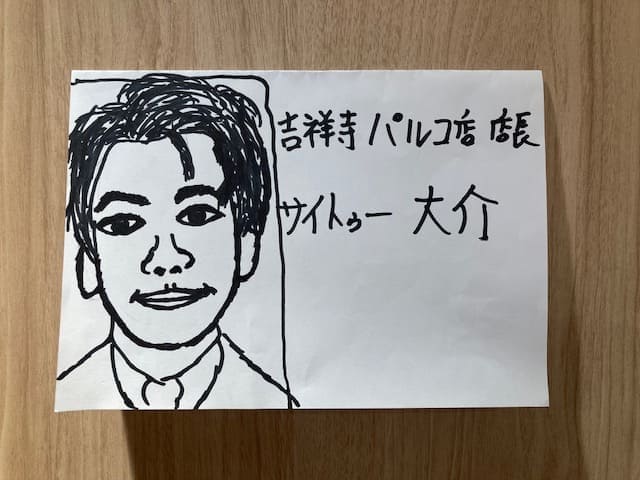 吉祥寺 パルコ店 店長
サイトゥー 大介